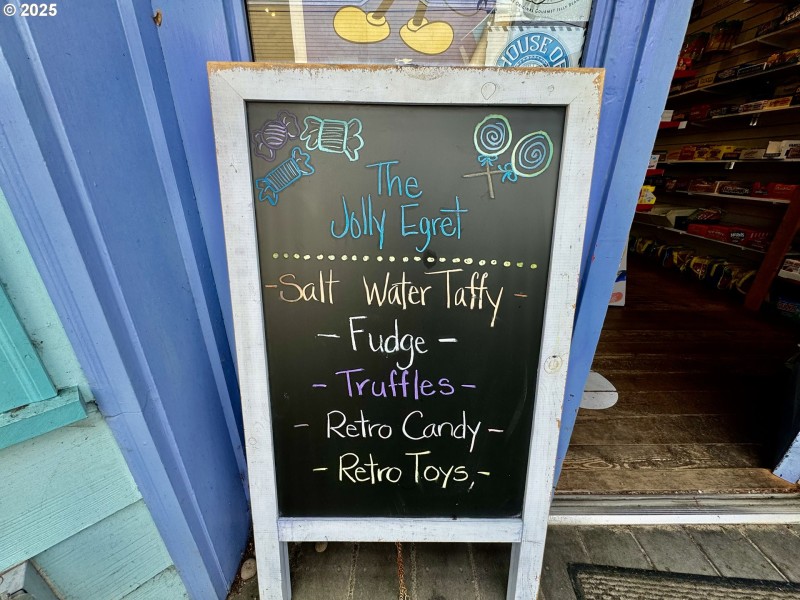 © 2025
HOUSE OF
The
Jolly Egret
- Salt Water Taffy -
- Fudge -
- Truffles -
- Retro Candy -
- Retro Toys, -